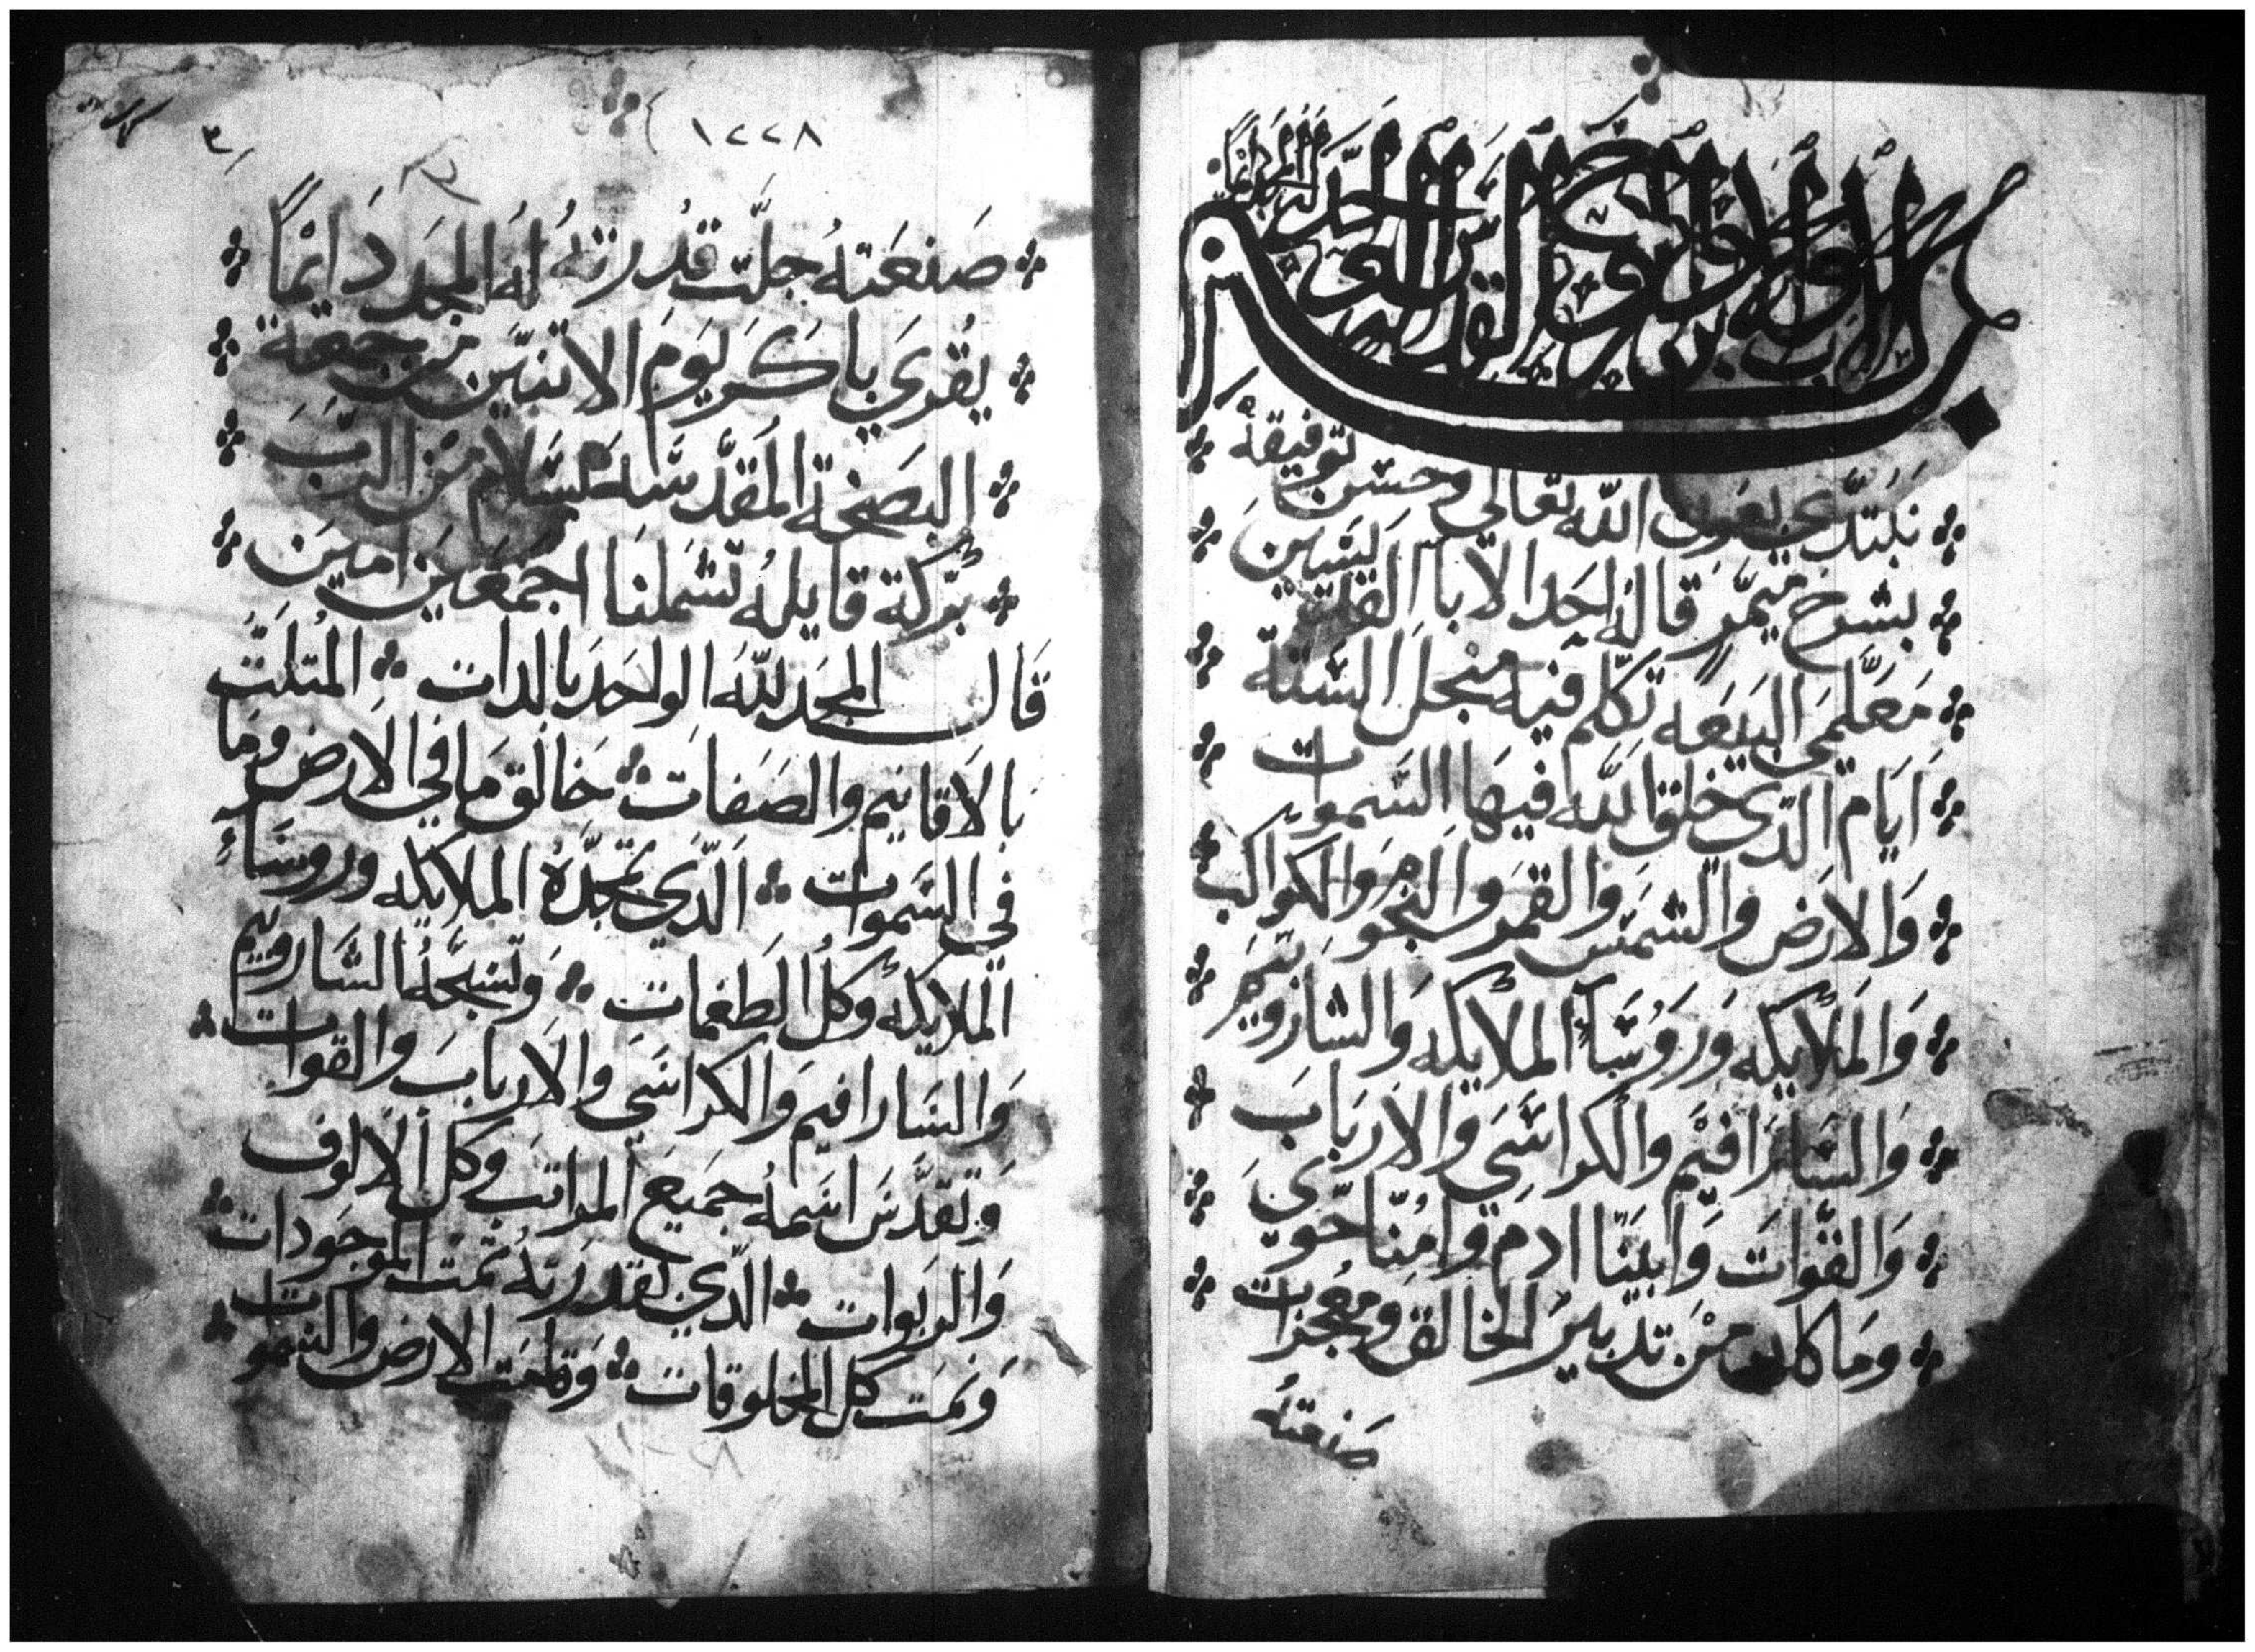 بسم الاب والابن والروح القدس الاله الواحد له المجد دايما
نبتدي بعون الله تعالي وحسن توفيقه
بشرح ميمر قاله احد الابا القديسين
معلمي البيعه تكلم فيه منجل الستة
ايام الدي خلق الله فيها السموات
والارض والشمس والقمر والنجوم والكواكب
والملايكه وروسآ الملايكه والشاروبيم
والسارافيم والكراسي والارباب
والقوات وابينا ادم وامنا حوي
وما كان من تدبير الخالق ومعجزات
صنعته
١٢٢٨
٣
صنعته جلت قدرته له المجد دايماً
يقري باكر يوم الاتنين من جمعة
البصخة المقدسه بسلام من الرب
بركة قايله تشملنا اجمعين امين
قال المجد لله الواحد بالدات المتلت
بالاقانيم والصفات خالق ما في الارض وما
في السموات الدي تمجده الملايكه وروساء
الملايكه وكل الطغمات وتسبحه الشاروبيم
والسارافيم والكراسي والارباب والقوات
وتقدس اسمه جميع المراتب وكل الالوف
والربوات الدي بقدرته تمت الموجودات
ونمت كل المخلوقات وقامت الارض والسموات